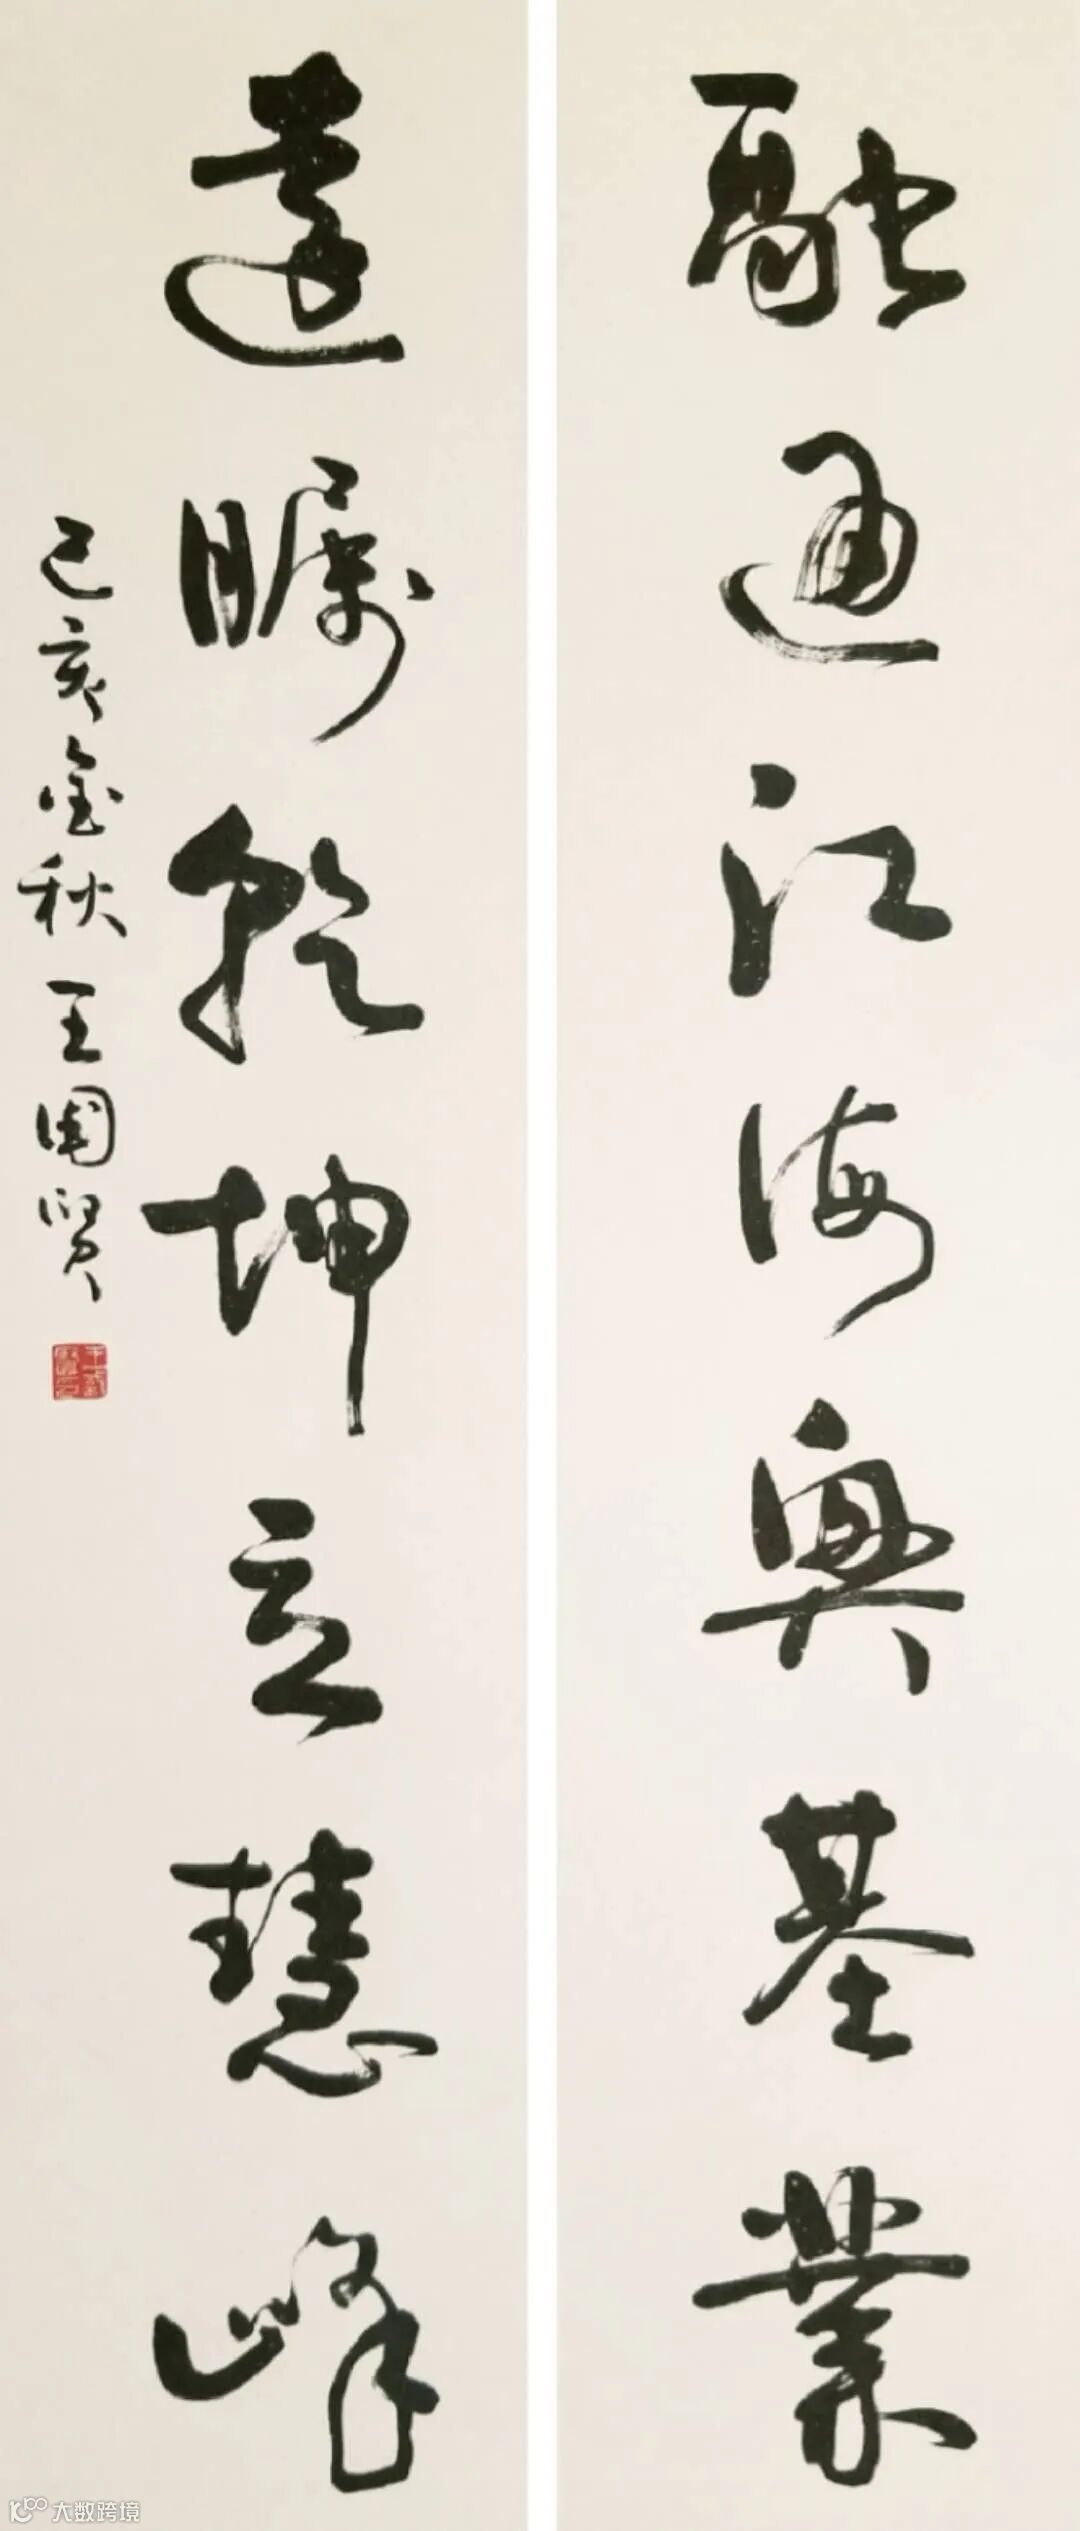 融通江海興基業
遠瞩乾坤立慧峰
己亥金秋 王国贤
大数跨境